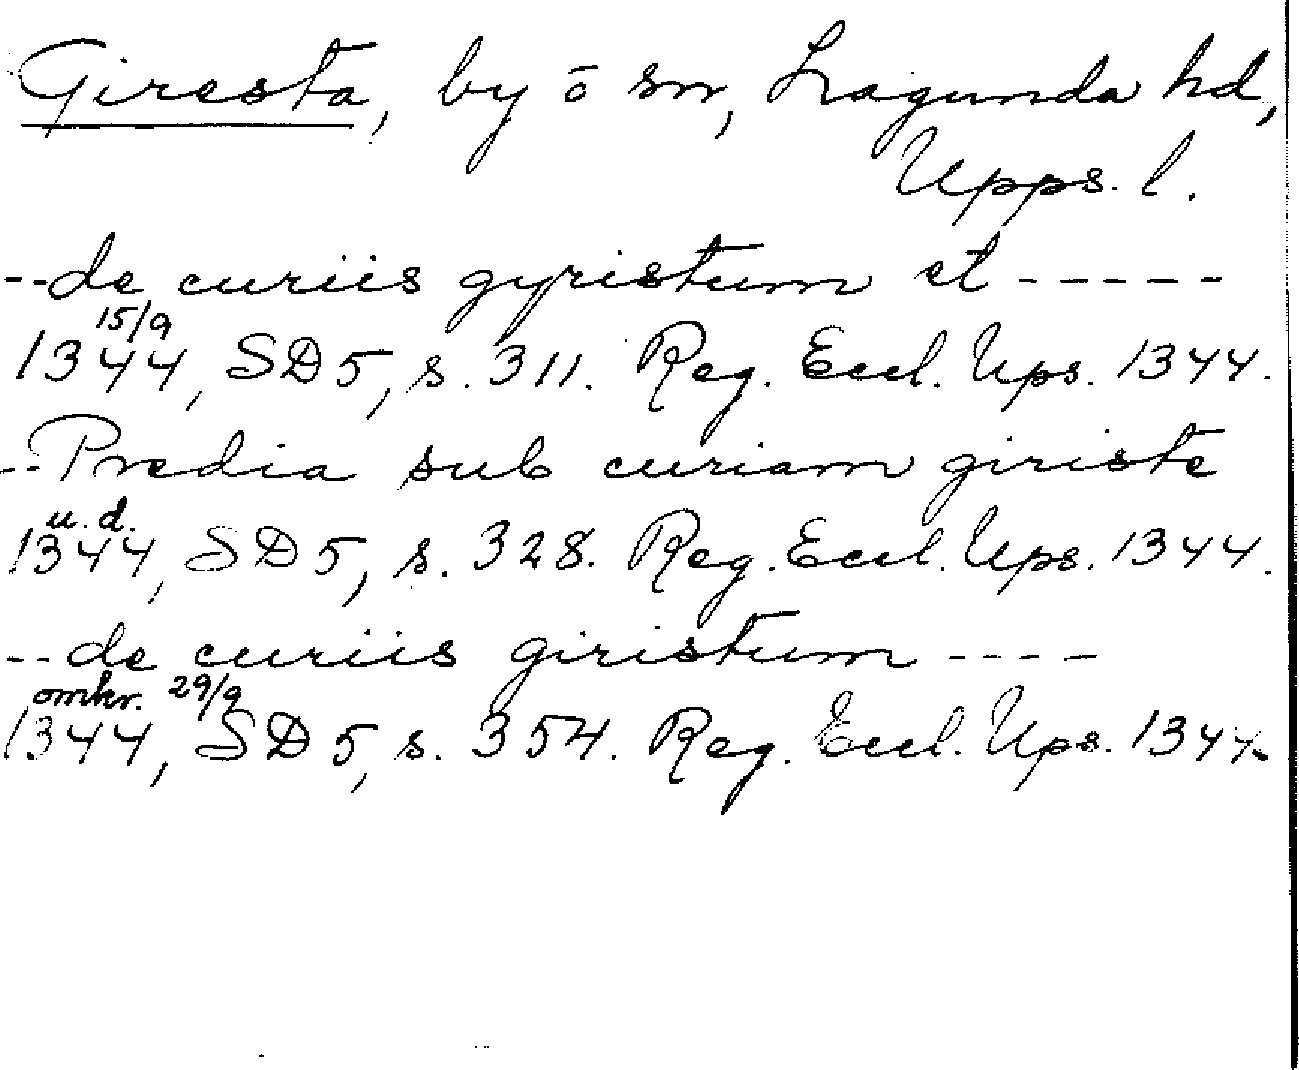 Giresta, by ō sn, Lagunda hd,
Upps. l.
--de curiis gyristum et -----
15/9
1344, SD 5, s. 311. Reg. Eccl. Ups. 1344.
--Predia sub curiam giriste
u. d.
1344, SD 5, s. 328. Reg. Eccl. Ups. 1344.
--de curiis giristum ----
omkr. 29/9
1344, SD 5, s. 354. Reg. Eccl. Ups. 1344.